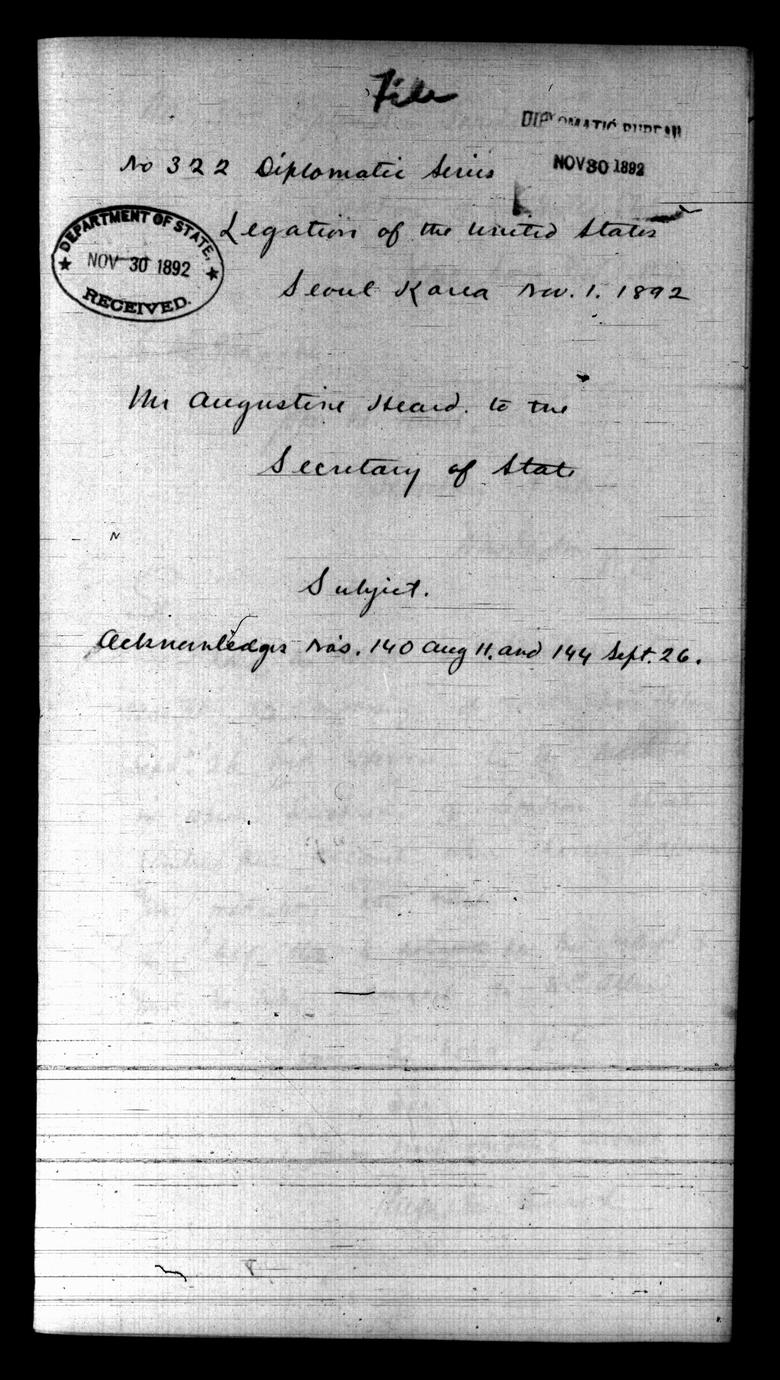 File
DIPLOMATIC BUREAU
NOV 30 1892
No 322 Diplomatic Series
DEPARTMENT OF STATE,
NOV 30 1892
RECEIVED.
Legation of the United States
Seoul Korea Nov. 1. 1892
Mr Augustine Heard. to the
Secretary of State
Subject.
Acknowledges Nos. 140 Aug 11. and 144 Sept. 26.